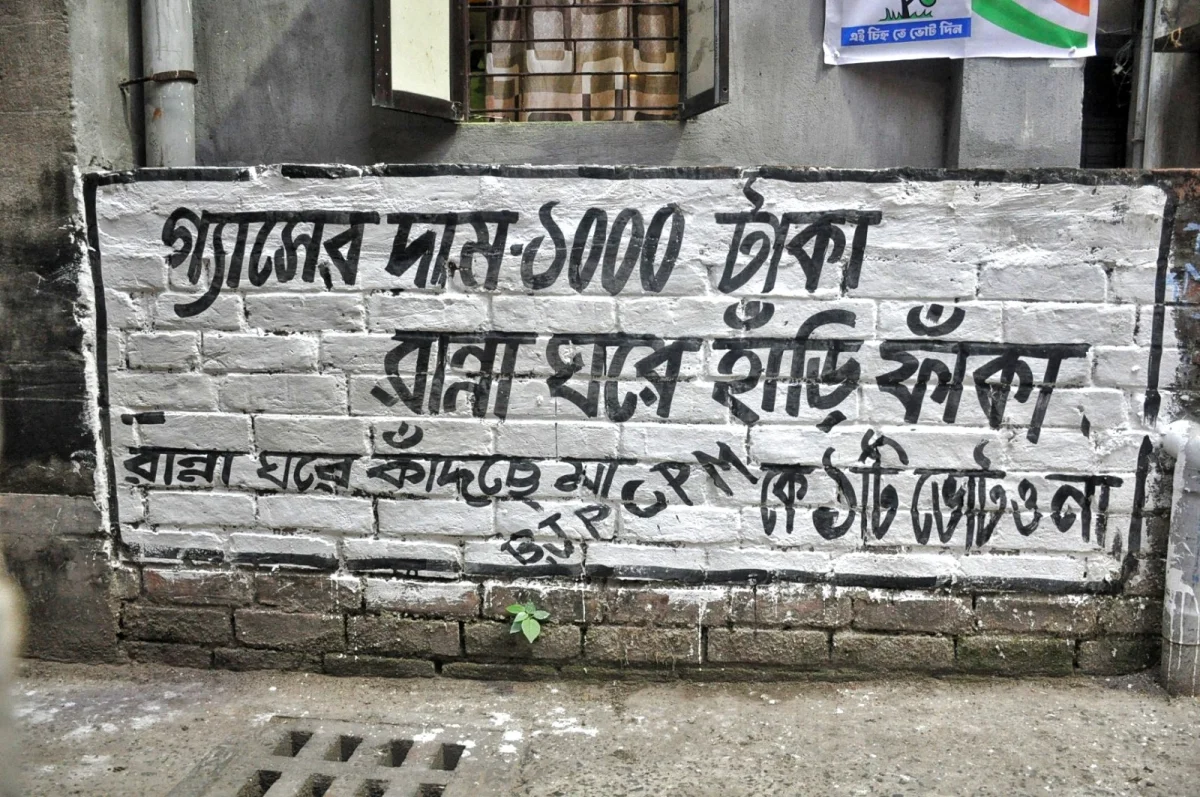 এই চিহ্ন তে ভোট দিন
গ্যাসের দাম-১০০০ টাকা
রান্না ঘরে হাঁড়ি ফাঁকা.
রান্না ঘরে কাঁদছে মা CPM কে ১টি ভোটও না
BJP